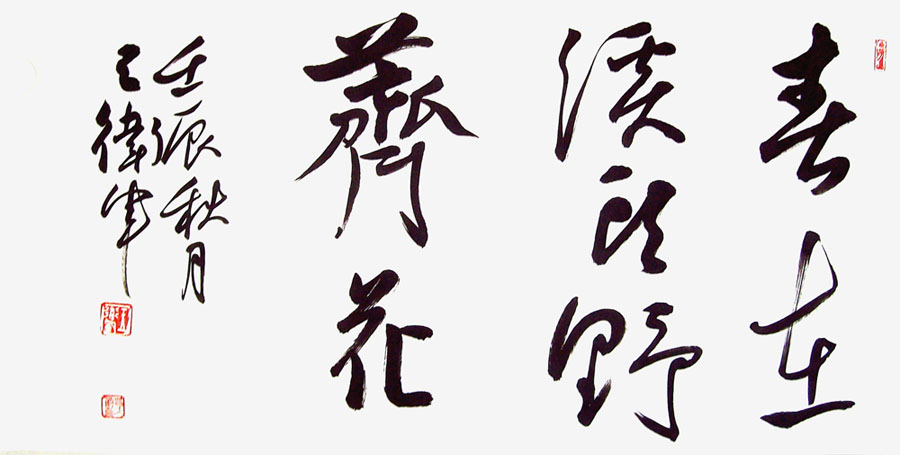 春在
溪頭野
薺花
壬辰秋月
王偉軍